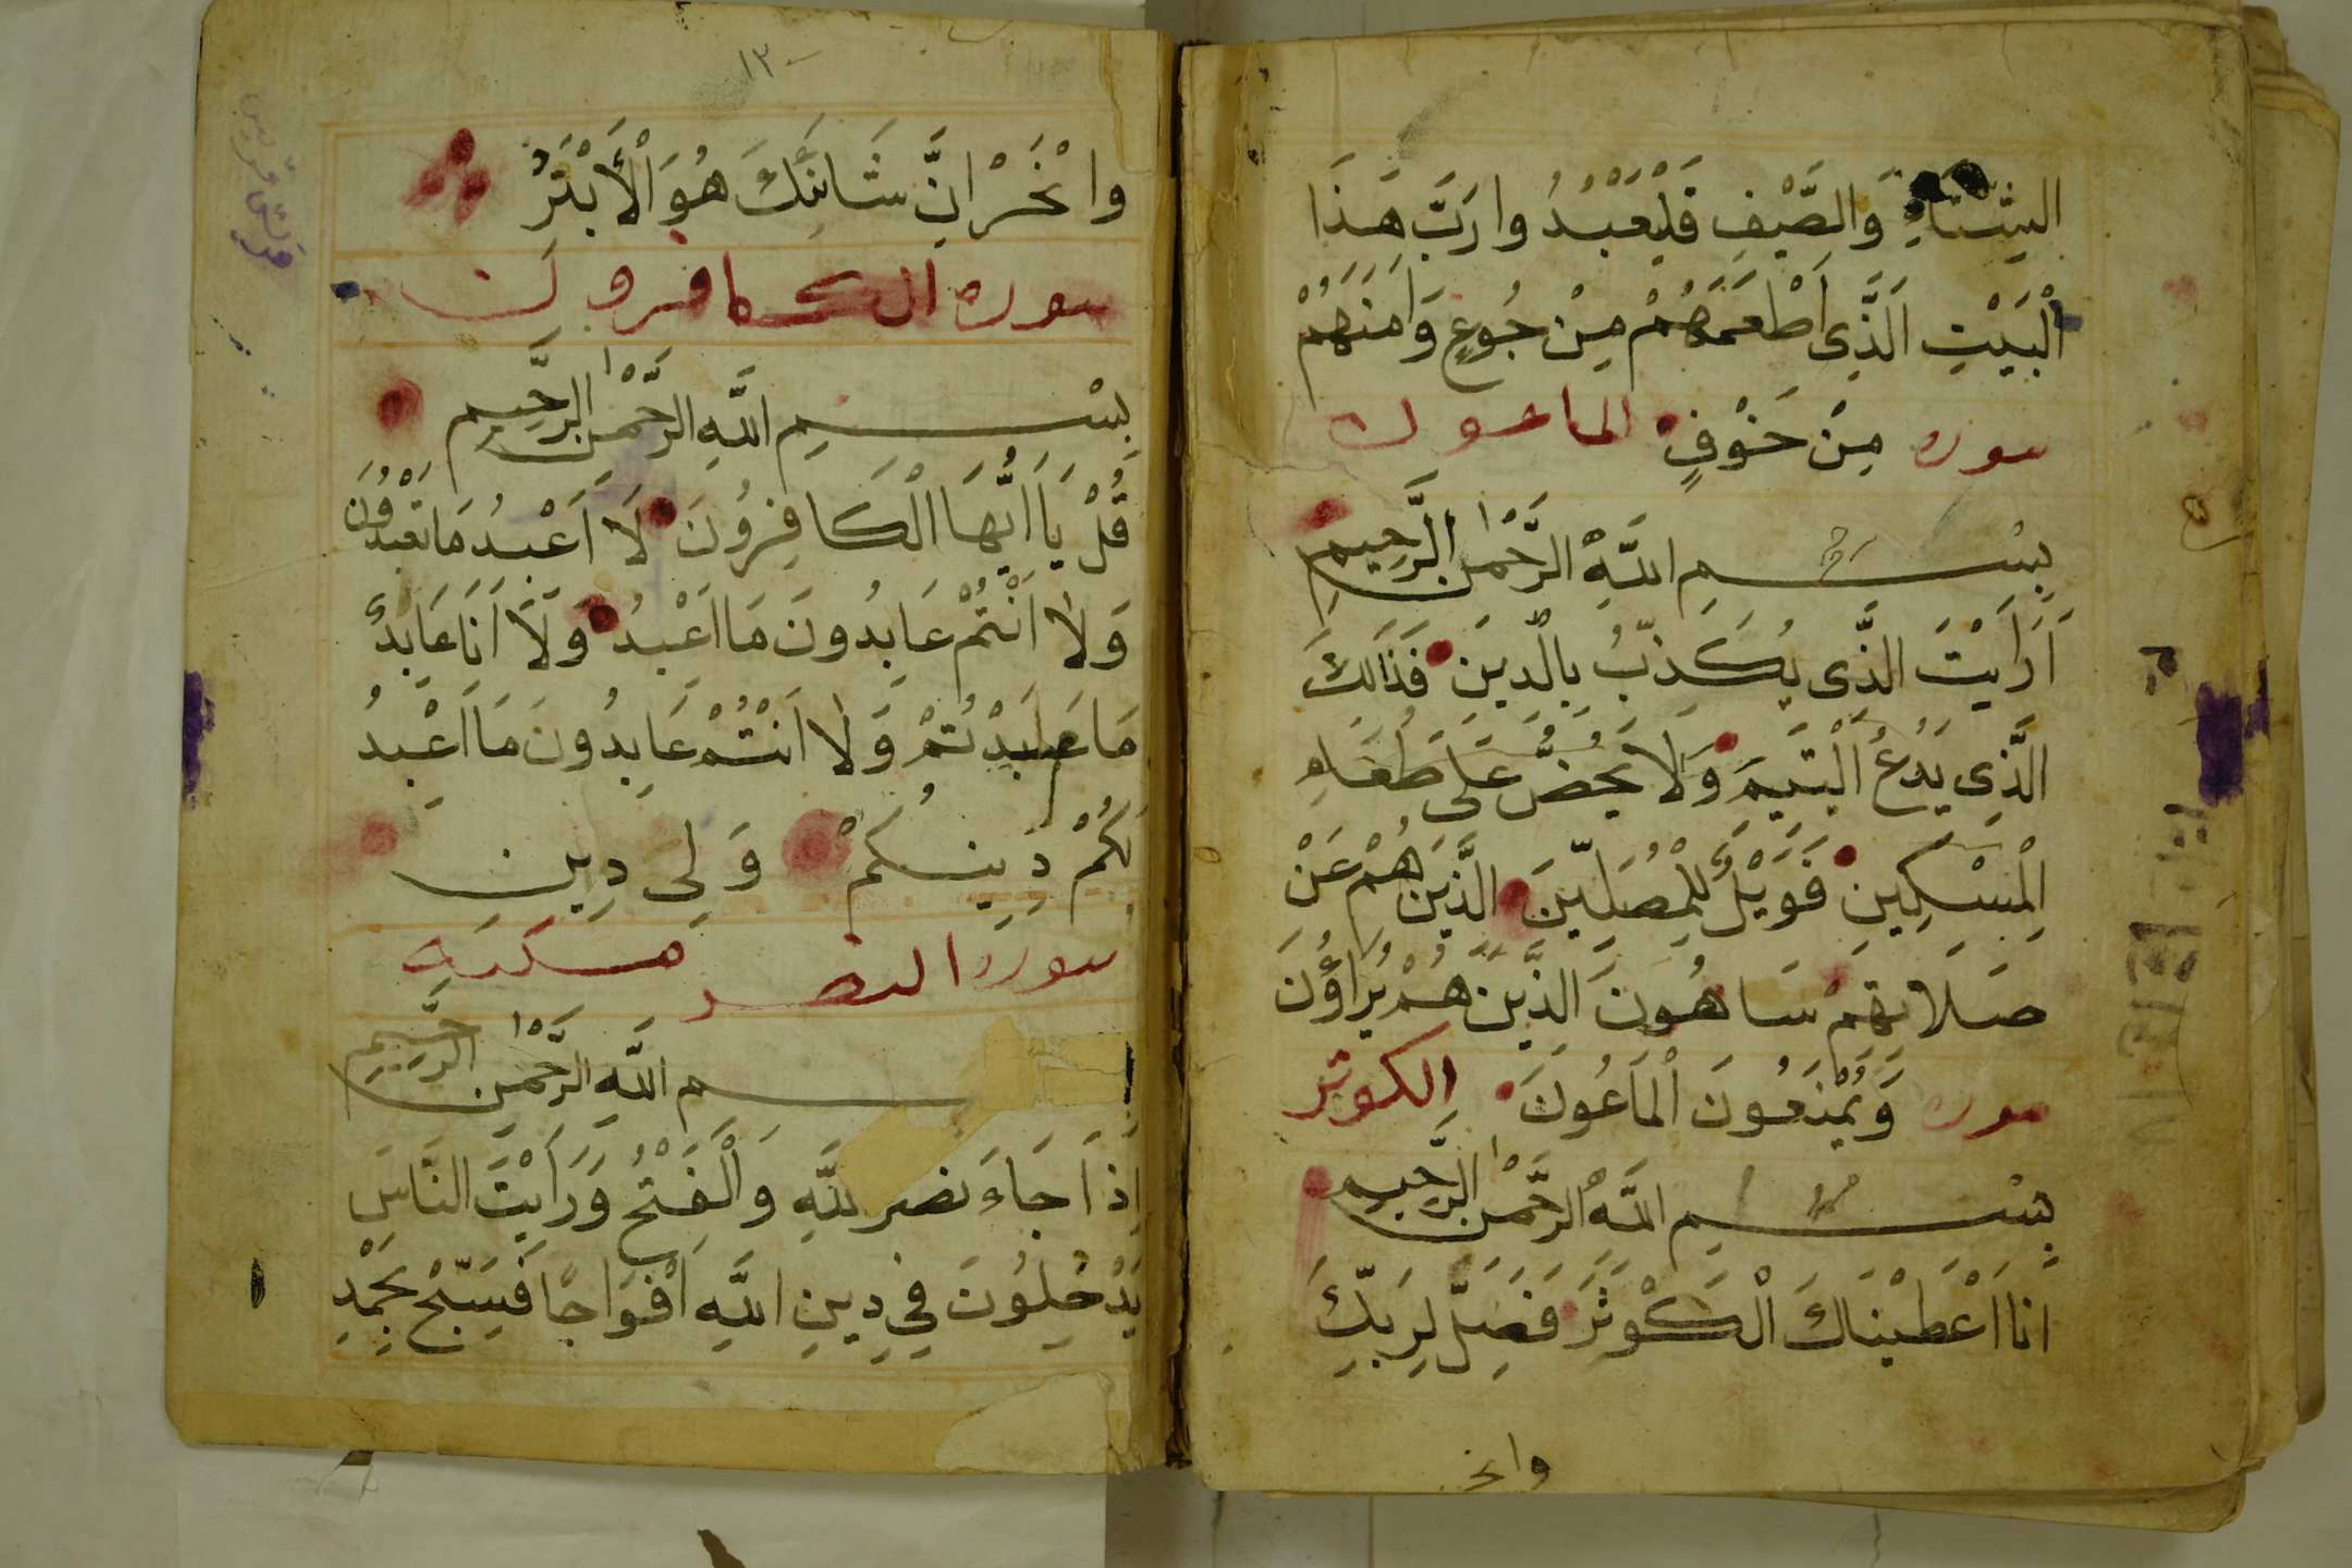 الشِّتَاءِ وَالصَّيْفِ فَلْيَعْبُدُ وا رَبَّ هَذَا
الْبَيْتِ الَّذِى اَطْعَمَهُمْ مِنْ جُوعٍ وَامَنَهُمْ
سوره مِنْ خَوْفٍ الماعون
بِسْمِ اللَّهِ الرَّحْمنِ الرَّحِيمِ
اَرَاَيْتَ الَّذِى يُكَذِّبُ بِالدِّينِ فَذَالِكَ
الَّذِى يَدُعُّ الْيَتِيمَ وَلَا يَحُضُّ عَلَى طَعَامِ
الْمِسْكِينِ فَوَيْلٌ لِلْمُصَلِّينَ الَّذِينَ هُمْ عَنْ
صَلَاتِهِمْ سَاهُونَ الَّذِينَ هُمْ يُرَاؤُنَ
سوره وَيَمْنَعُونَ الْمَاعُونَ الكوثر
بِسْمِ اللَّهِ الرَّحْمنِ الرَّحِيمِ
انا اَعْطَيْنَاكَ الْكَوْثَرَ فَصَلِّ لِرَبِّكَ
وانحر
١٣٠
وانْحَرْ اِنَّ شَانِئَكَ هُوَ الْأَبْتَرُ
سوره الكافرون
بِسْمِ اللَّهِ الرَّحْمنِ الرَّحِيمِ
قُلْ يَا اَيُّهَا الْكَافِرُونَ لَا اَعْبُدُ مَا تَعْبُدُونَ
وَلَا اَنْتُمْ عَابِدُونَ مَا اَعْبُدُ وَلَا اَنَا عَابِدٌ
مَا عَبَدْتُمْ وَلَا اَنْتُمْ عَابِدُونَ مَا اَعْبُدُ
لَكُمْ دِينُكُمْ وَلِى دِينِ
سوره النصر مكيه
بسم اللَّهِ الرَّحْمنِ الرَّحِيمِ
اِذَا جَاءَ نصر للَّهِ وَالْفَتْحُ وَرَاَيْتَ النَّاسَ
يَدْخُلُونَ فِي دِينِ اللَّهِ اَفْوَاجًا فَسَبِّحْ بِحَمْدِ